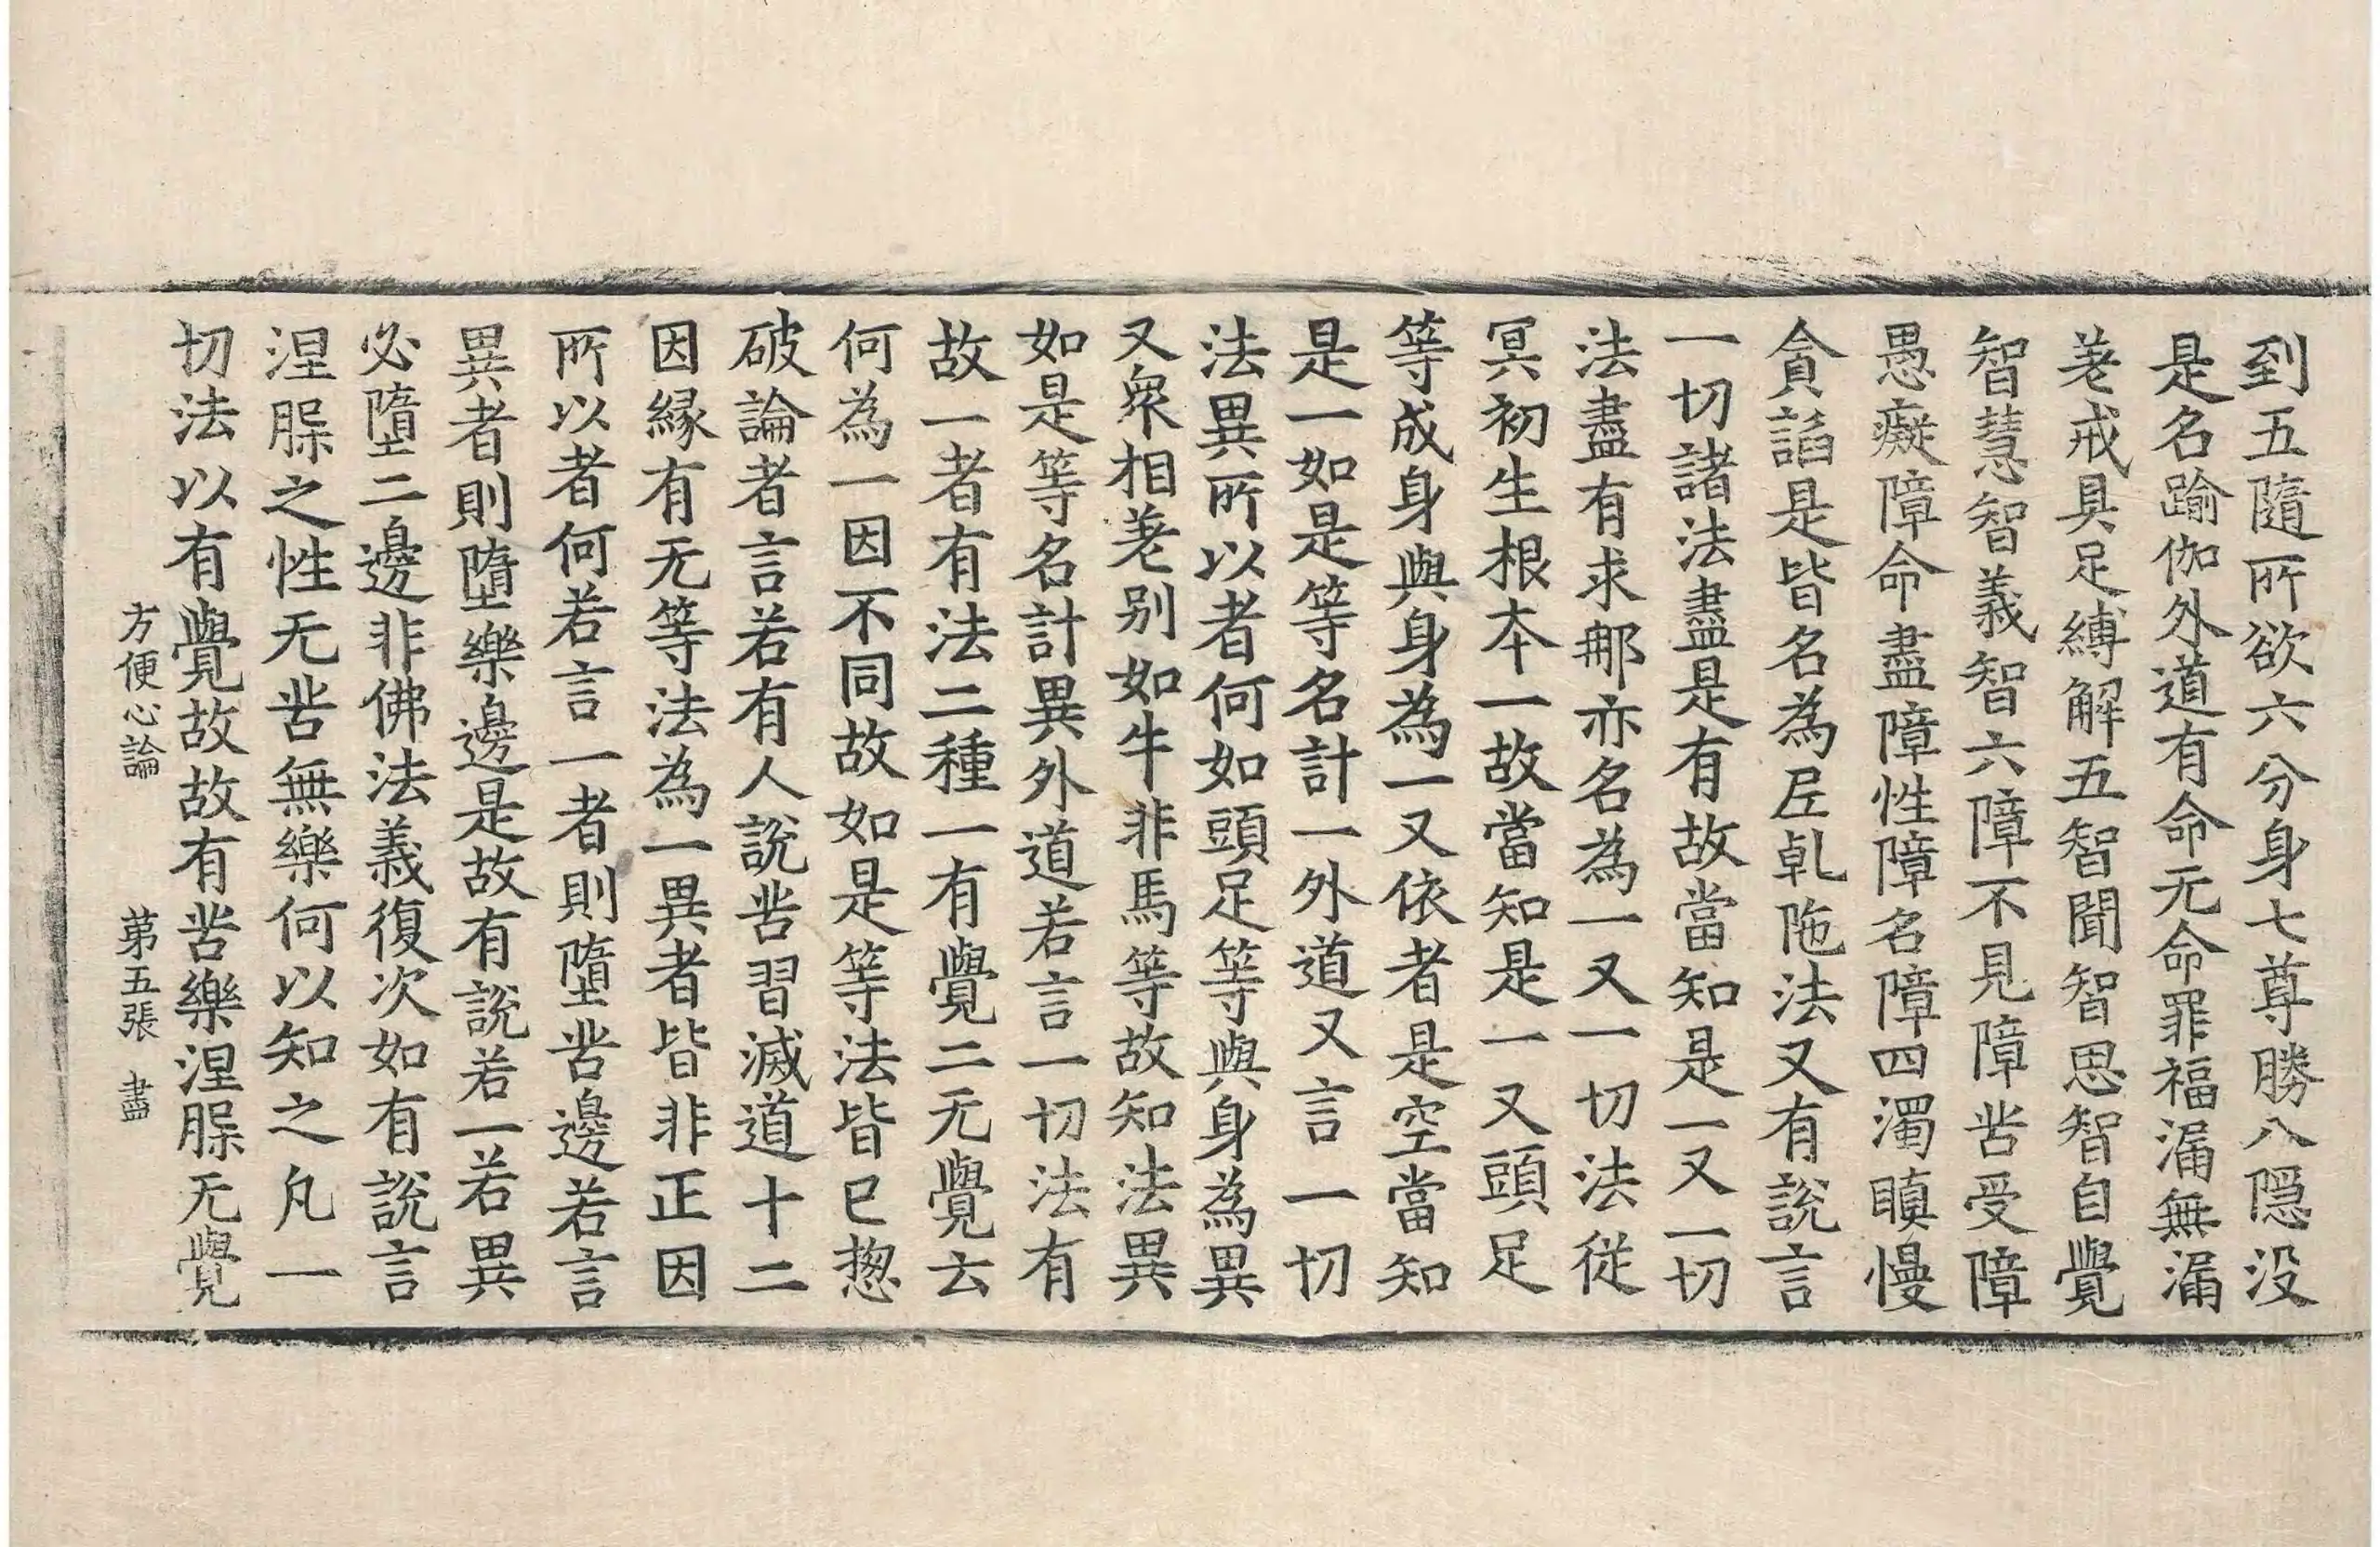 到五隨所欲六分身七尊勝八隱没
是名踰伽外道有命无命罪福漏無漏
差戒具足縛解五智聞智思智自覺
智慧智義智六障不見障苦受障
愚癡障命盡障性障名障四濁瞋慢
貪諂是皆名為𡰱乹陁法又有說言
一切諸法盡是有故當知是一又一切
法盡有求那亦名為一又一切法從
冥初生根本一故當知是一又頭足
等成身與身為一又依者是空當知
是一如是等名計一外道又言一切
法異所以者何如頭足等與身為異
又衆相差别如牛非馬等故知法異
如是等名計異外道若言一切法有
故一者有法二種一有覺二无覺云
何為一因不同故如是等法皆已揔
破論者言若有人說苦習滅道十二
因縁有无等法為一異者皆非正因
所以者何若言一者則墮苦邊若言
異者則墮樂邊是故有說若一若異
必墮二邊非佛法義復次如有說言
涅槃之性无苦無樂何以知之凡一
切法以有覺故故有苦樂涅槃无覺
方便心論 第五張 盡